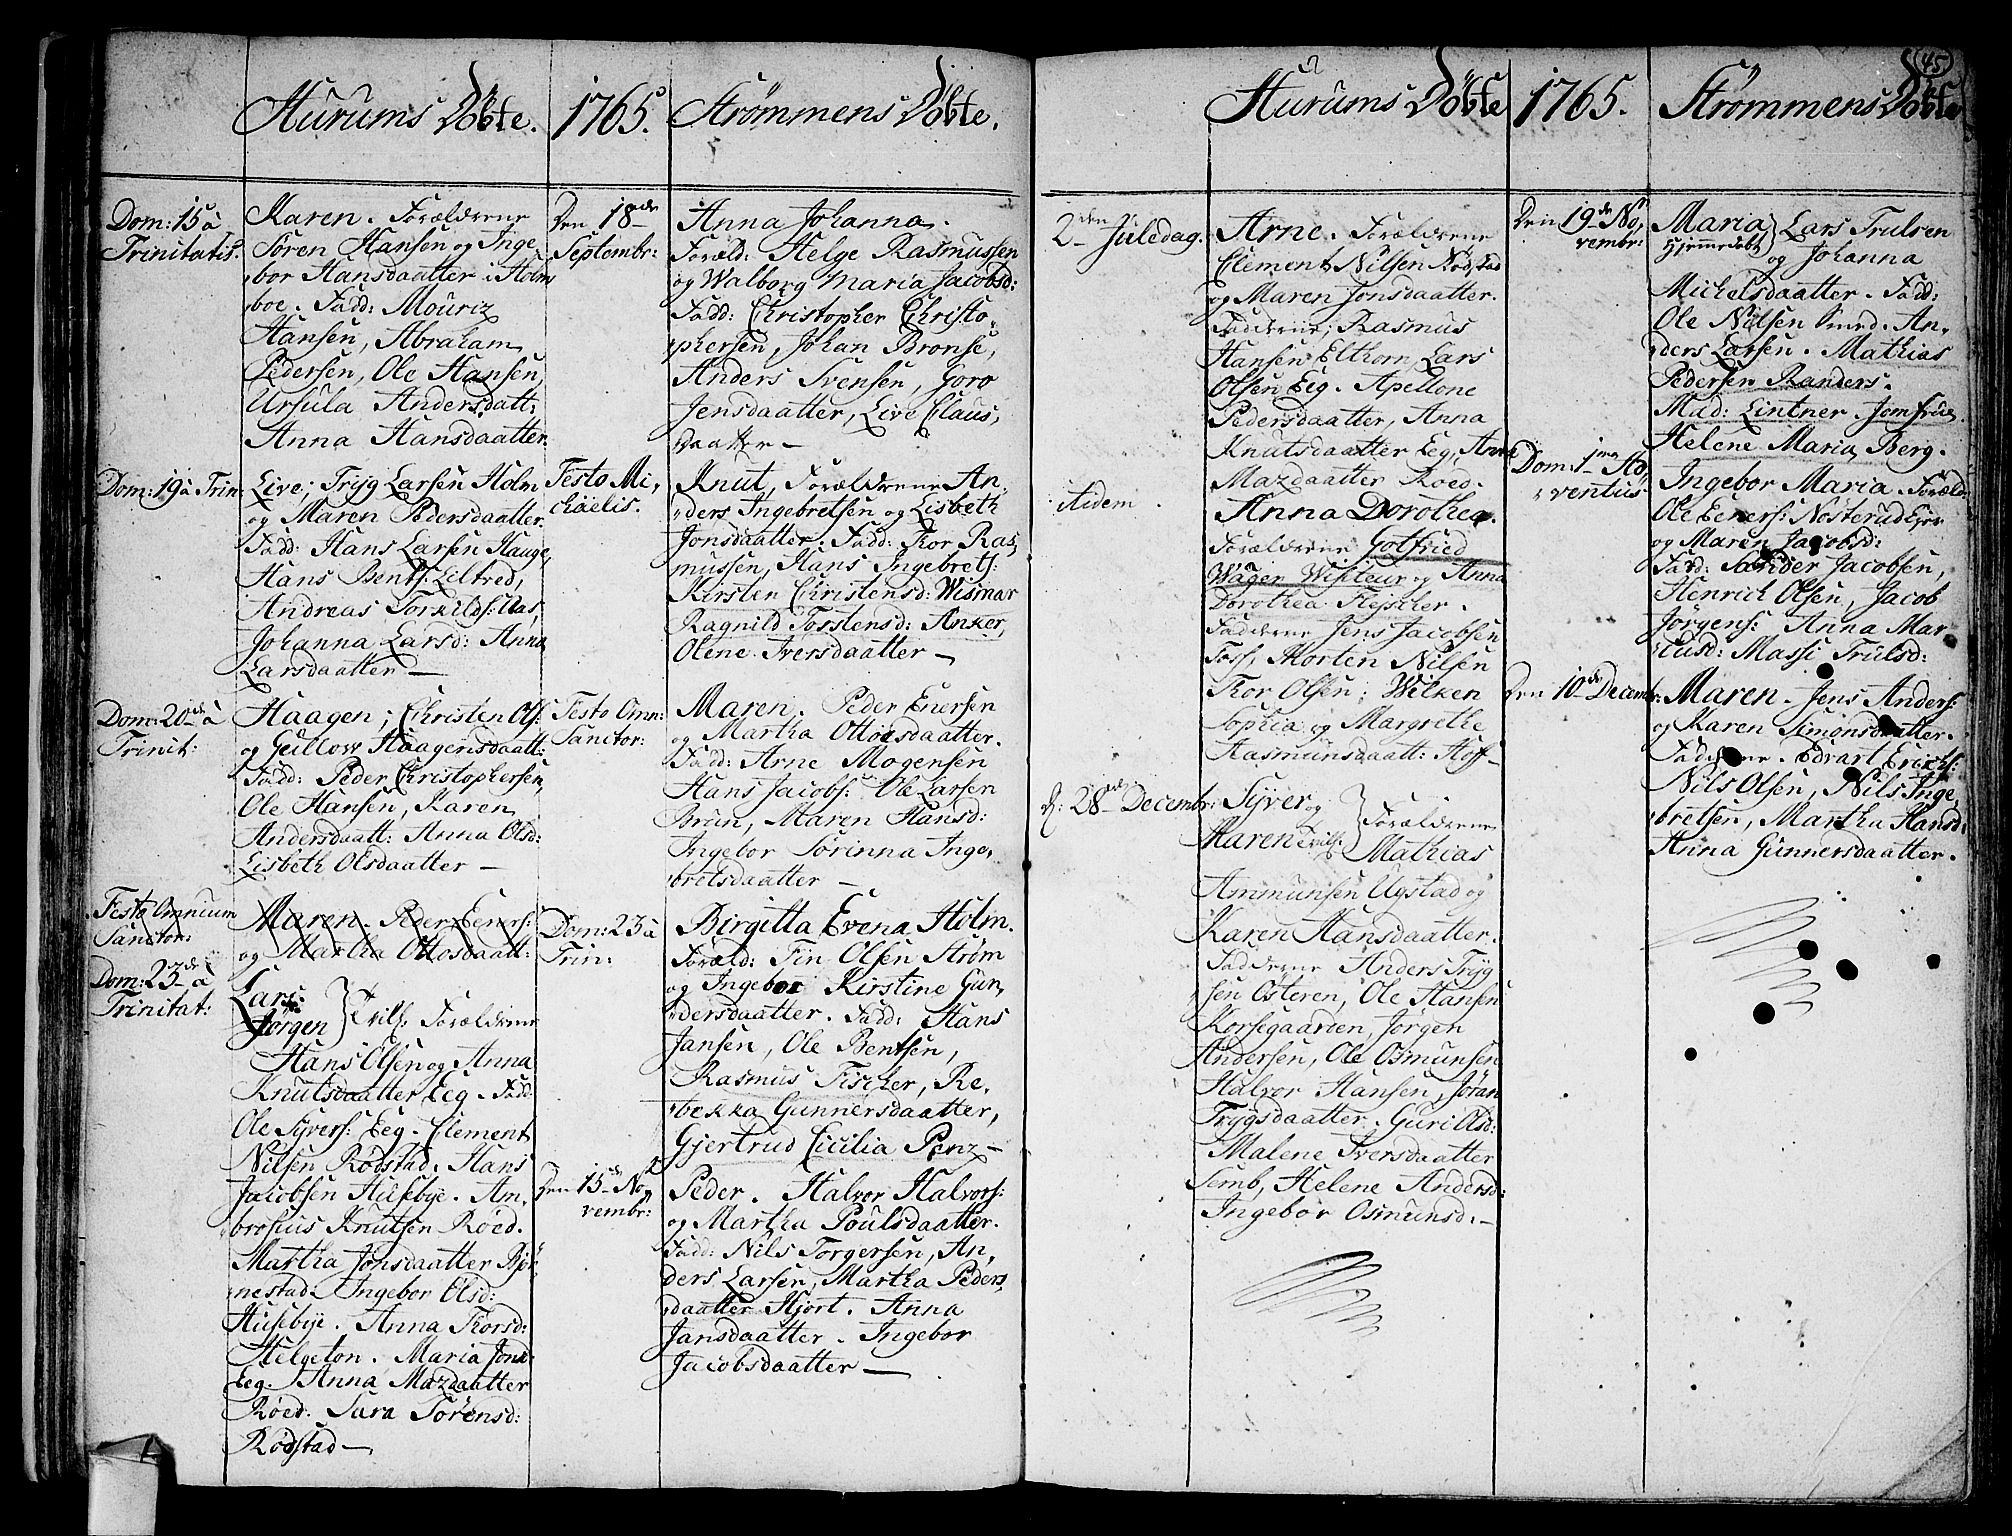 45
Hurums Döbte.
1765.
Strømmens Döbte.
Dom: 15 à
Trinitatis.
Karen. Forælderene
Sören Hansen og Inge
bor Hansdaatter i Holm
boe. Fadd: Mouriz
Hansen, Abraham
Pedersen, Ole Hansen,
Ursula Andersdatt:
Anna Hansdaatter.
Dom: 19 à Trin:
Live; Tryg Larsen Holm
og Maren Pedersdaatter.
Fadd: Hans Larsen Hauge,
Hans Bents: Liltred,
Andreas Torkilds: Aas,
Johanna Larsd: Anna
Larsdaatter —
Dom: 20de à
Trinit:
Haagen; Christen Ols:
og Gullow Haagensdaatt:
Fadd: Peder Christophersen,
Ole Hansen, Karen
Andersdaatt: Anna Olsd:
Lisbeth Olsdaatter —
Festo Omnium
Sanctor:
Maren. Peder Eeners:
og Martha Ottosdaatt:
Dom: 23de à
Trinitat:
Lars
Jörgen } tvill: Forælderene
Hans Olsen og Anna
Knutsdaatter Eeg. Fadd:
Ole Syvers: Eeg. Clement
Nilsen Rödstad, Hans
Jacobsen Husebye. Am,
brosius Knutsen Röed.
Martha Jonsdaatter Björ,
nestad. Ingebor Olsd:
Husebye. Anna Torsd:
Helgeton. Maria Jonsd:
Eeg. Anna Mazdaatter
Röed. Sara Sörensd:
Rödstad —
Den 18de
Septembr:
Anna Johanna.
Foræld: Helge Rasmussen
og Walborg Maria Jacobsd:
Fadd: Christopher Christo,
phersen, Johan Bronse,
Anders Svensen, Goro
Jensdaatter, Live Claus,
daatter —
Festo Mi,
chaelis.
Knut, Forælderene An,
ders Ingebretsen og Lisbeth
Jonsdaatter. Fadd: Tor Ras,
mussen, Hans Ingebrets:
Kirsten Christensd: Wismar
Ragnild Torstensd: Anker,
Olene Iversdaatter —
Festo Omn:
Sanctor:
Maren. Peder Enersen
og Martha Ottosdaatter.
Fadd: Arne Mogensen
Hans Jacobs: Ole Larsen
Brun, Maren Hansd:
Ingebor Sörinna Inge,
bretsdaatter —
Dom: 23 à
Trin:
Birgitta Evena Holm.
Foræld: Fin Olsen Ström
og Ingebor Kirstine Gun,
dersdaatter. Fadd: Hans
Jansen, Ole Bentsen,
Rasmus Fischer, Re,
bekka Gunnersdaatter,
Gjertrud Cicilia Penz —
Den 15de No,
vembr:
Peder. Halvor Halvors:
og Martha Poulsdaatter.
Fadd: Nils Torgersen, An,
ders Larsen, Martha Peders,
daatter Hjort. Anna
Jansdaatter. Ingebor
Jacobsdaatter —
Hurums Döbte
1765.
Strømmens Döbte
2den Juledag.
Arne. Forælderene
Clement Nilsen Rödstad
og Maren Jonsdaatter.
Fadderne; Rasmus
Hansen Elthorn, Lars
Olsen Eeg. Apellone
Pedersdaatter, Anna
Knutsdaatter Eeg, Anna
Mazdaatter Röed.
Anna Dorothea.
Forælderene Gotfried
Wager Visiteur og Anna
Dorothea Flejscher.
Fadderne Jens Jacobsen
Foss, Morten Nilsen
Tor Olsen; Wilken
Sophia og Margrethe
Rasmunsdaatt: Hoff —
d: 28de Decembr:
Syver og
Maren tvill: } Forælderene
Mathias
Ammunsen Ugstad og
Karen Hansdaatter.
Fadderne Anders Tryg
sen Österen, Ole Hansen
Korsegaarden, Jörgen
Andersen, Ole Osmunsen
Halvor Hansen, Jöran
Trygsdaatter. Guri Olsd:
Malene Iversdaatter
Semb, Helene Andersd:
Ingebor Osmunsd: —
Den 19de No,
vembr:
Maria
Hjemmedøbt } Lars Trulsen
og Johanna
Michelsdaatter. Fadd:
Ole Nilsen Smed. An,
ders Larsen. Mathias
Pedersen Randers.
Mad: Lintner. Jomfrue
Helene Maria Berg.
Dom: 1ma Ad,
ventus.
Ingebor Maria. Foræld:
Ole Eeners: Nosterud
og Maren Jacobsd:
Fadd: Sander Jacobsen,
Henrich Olsen, Jacob
Jörgens: Anna Mar
cusd: Massi Trulsd:
Den 10de Decembr:
Maren. Jens Anders:
og Karen Simonsdaatter.
Fadderne. Edvart Erichs:
Nils Olsen, Nils Inge,
bretsen, Martha Hansd:
Anna Gunnersdaatter.